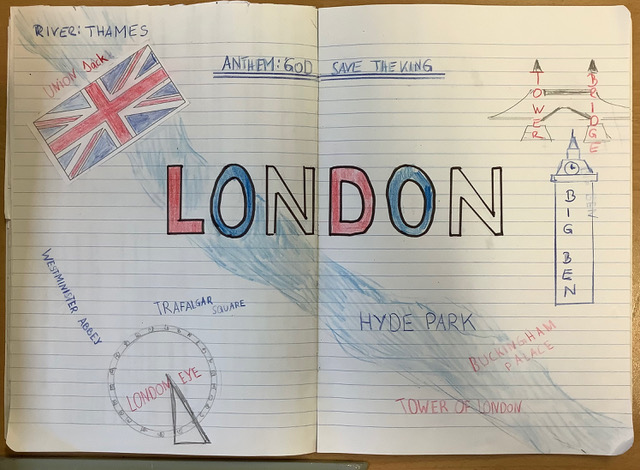 RIVER: THAMES
UNION Jack
ANTHEM: GOD SAVE THE KING
TOWER
BRIDGE
LONDON
BIG BEN
WESTMINISTER ABBEY
TRAFALGAR
SQUARE
HYDE PARK
BUCKINGHAM
PALACE
LONDON EYE
TOWER OF LONDON